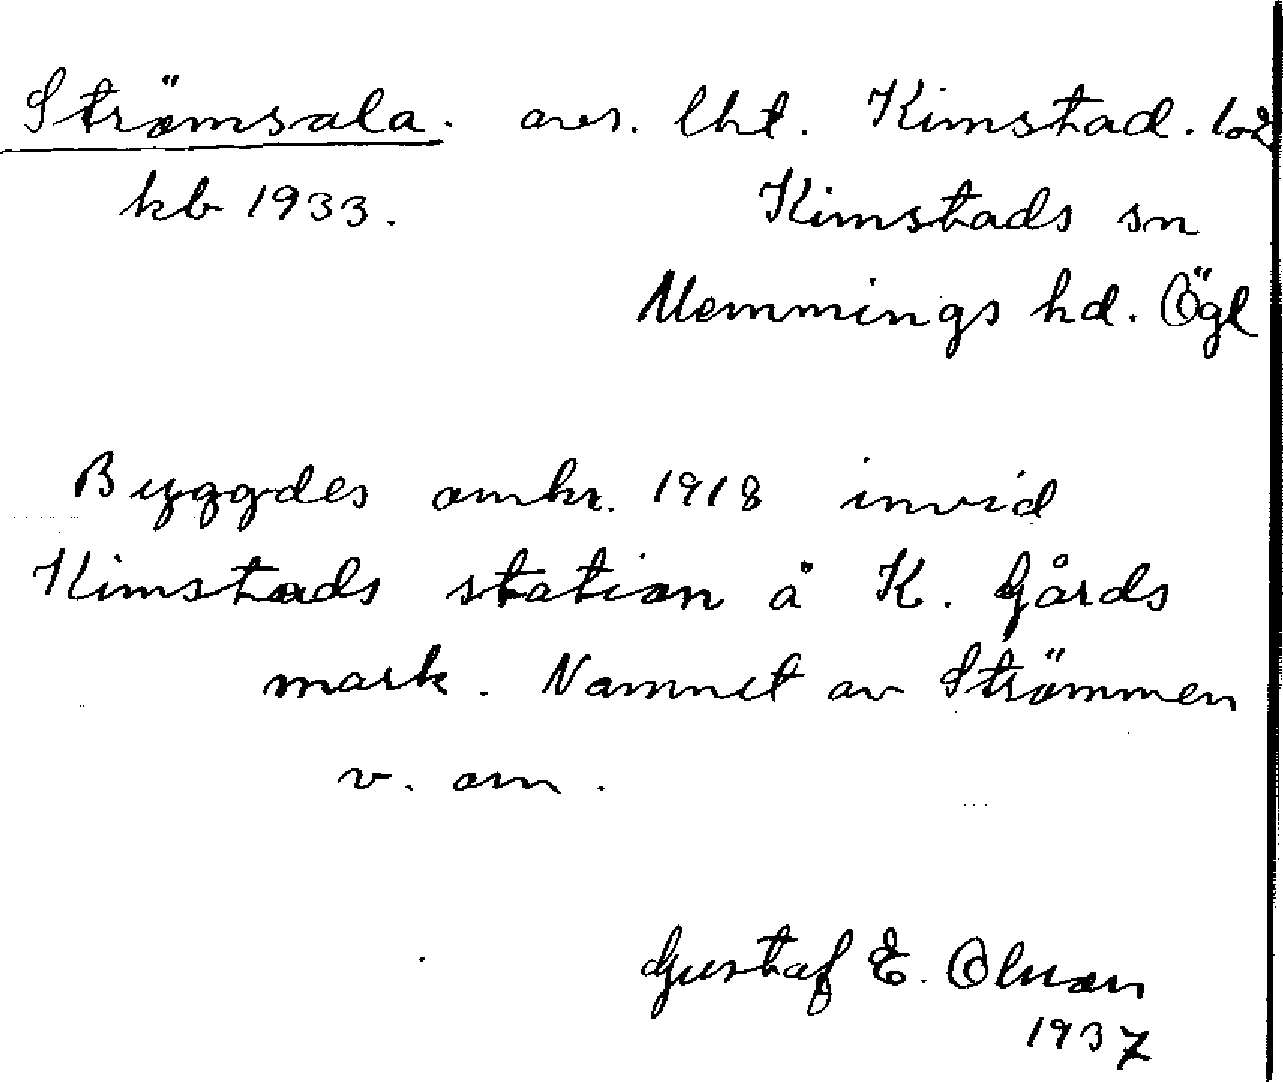 Strömsala. avs. lht. Kimstad. 1o2
kb 1933. Kimstads sn
Memmings hd. Ögl
Byggdes omkr. 1918 invid
Kimstads station å K. Gårds
mark. Namnet av Strömmen
v. om.
Gustaf E. Olsson
1937